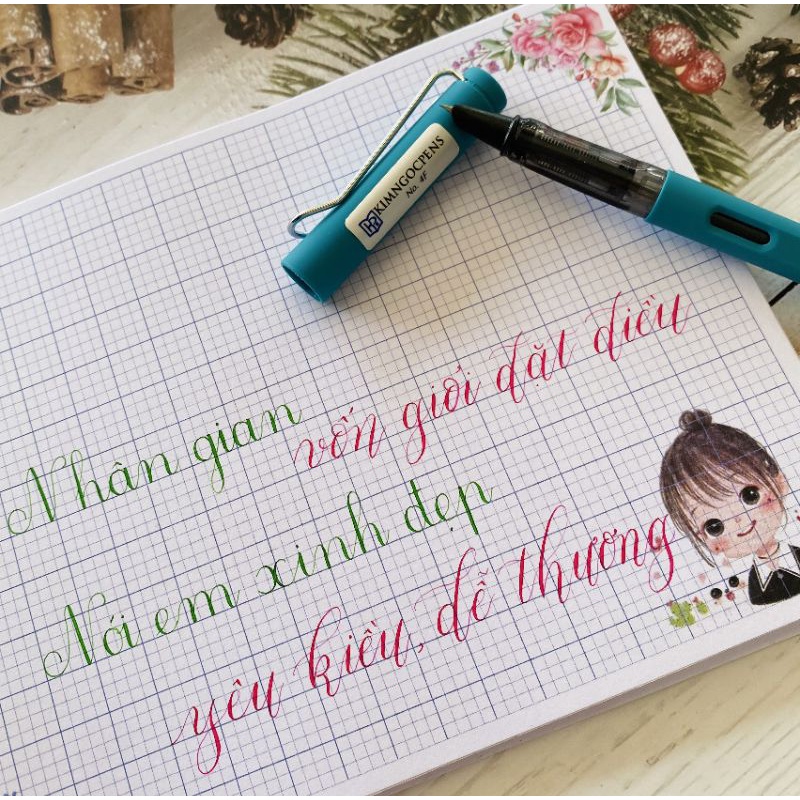 KIMNGOCPENS
No. 4F
Nhân gian
vốn giỏi đặt điều
Nói em xinh đẹp
yêu kiều, dễ thương